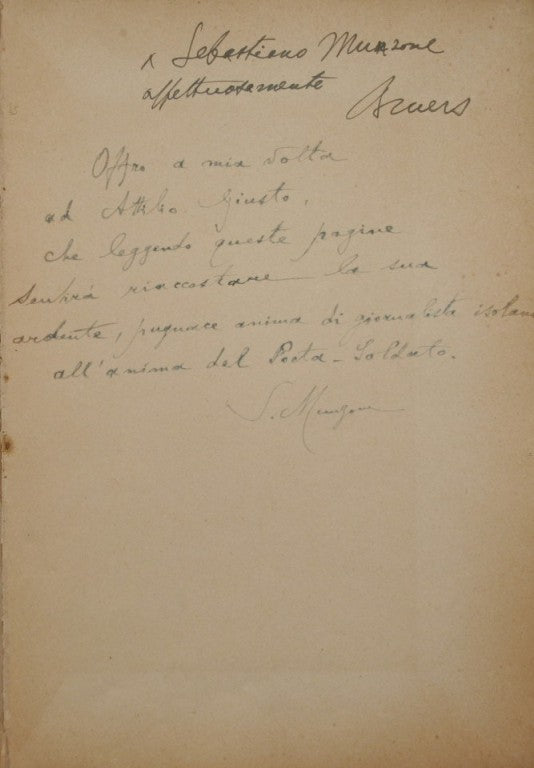 A Sebastiano Munzone
affettuosamente
Offro a mia volta
ad Attilio Giusto,
che leggendo queste pagine
sentirà riaccostare la sua
ardente, pugnace anima di giornalista isolano
all'anima del Poeta-Soldato.
S. Munzone